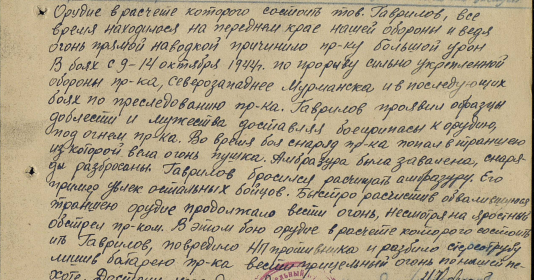 Орудие в расчете которого состоит тов. Гаврилов, все
время находилося на переднем крае нашей обороны и ведя
огонь прямой наводкой причинило пр-ку большой урон
В боях с 9-14 октября 1944г. по прорыву сильно укрепленной
обороны пр-ка, северозападнее Мурманска и в последующих
боях по преследованию пр-ка. Гаврилов проявил образцы
доблести и мужества доставляя боеприпасы к орудию,
под огнем пр-ка. Во время боя снаряд пр-ка попал в траншею
из которой вела огонь пушка. Амбразура была завалена, снаря-
ды разбросаны. Гаврилов бросился расчищать амбразуру. Его
пример увлек остальных бойцов. Быстро расчистив обвалившуюся
траншею орудие продолжало вести огонь, несмотря на яростный
обстрел пр-ком. В этом бою орудие в расчете которого состоит
ит Гаврилов, повредило НП противника и разбило стереотрубу
лишив батарею пр-ка вести прицельный огонь по нашей пе-
хоте.